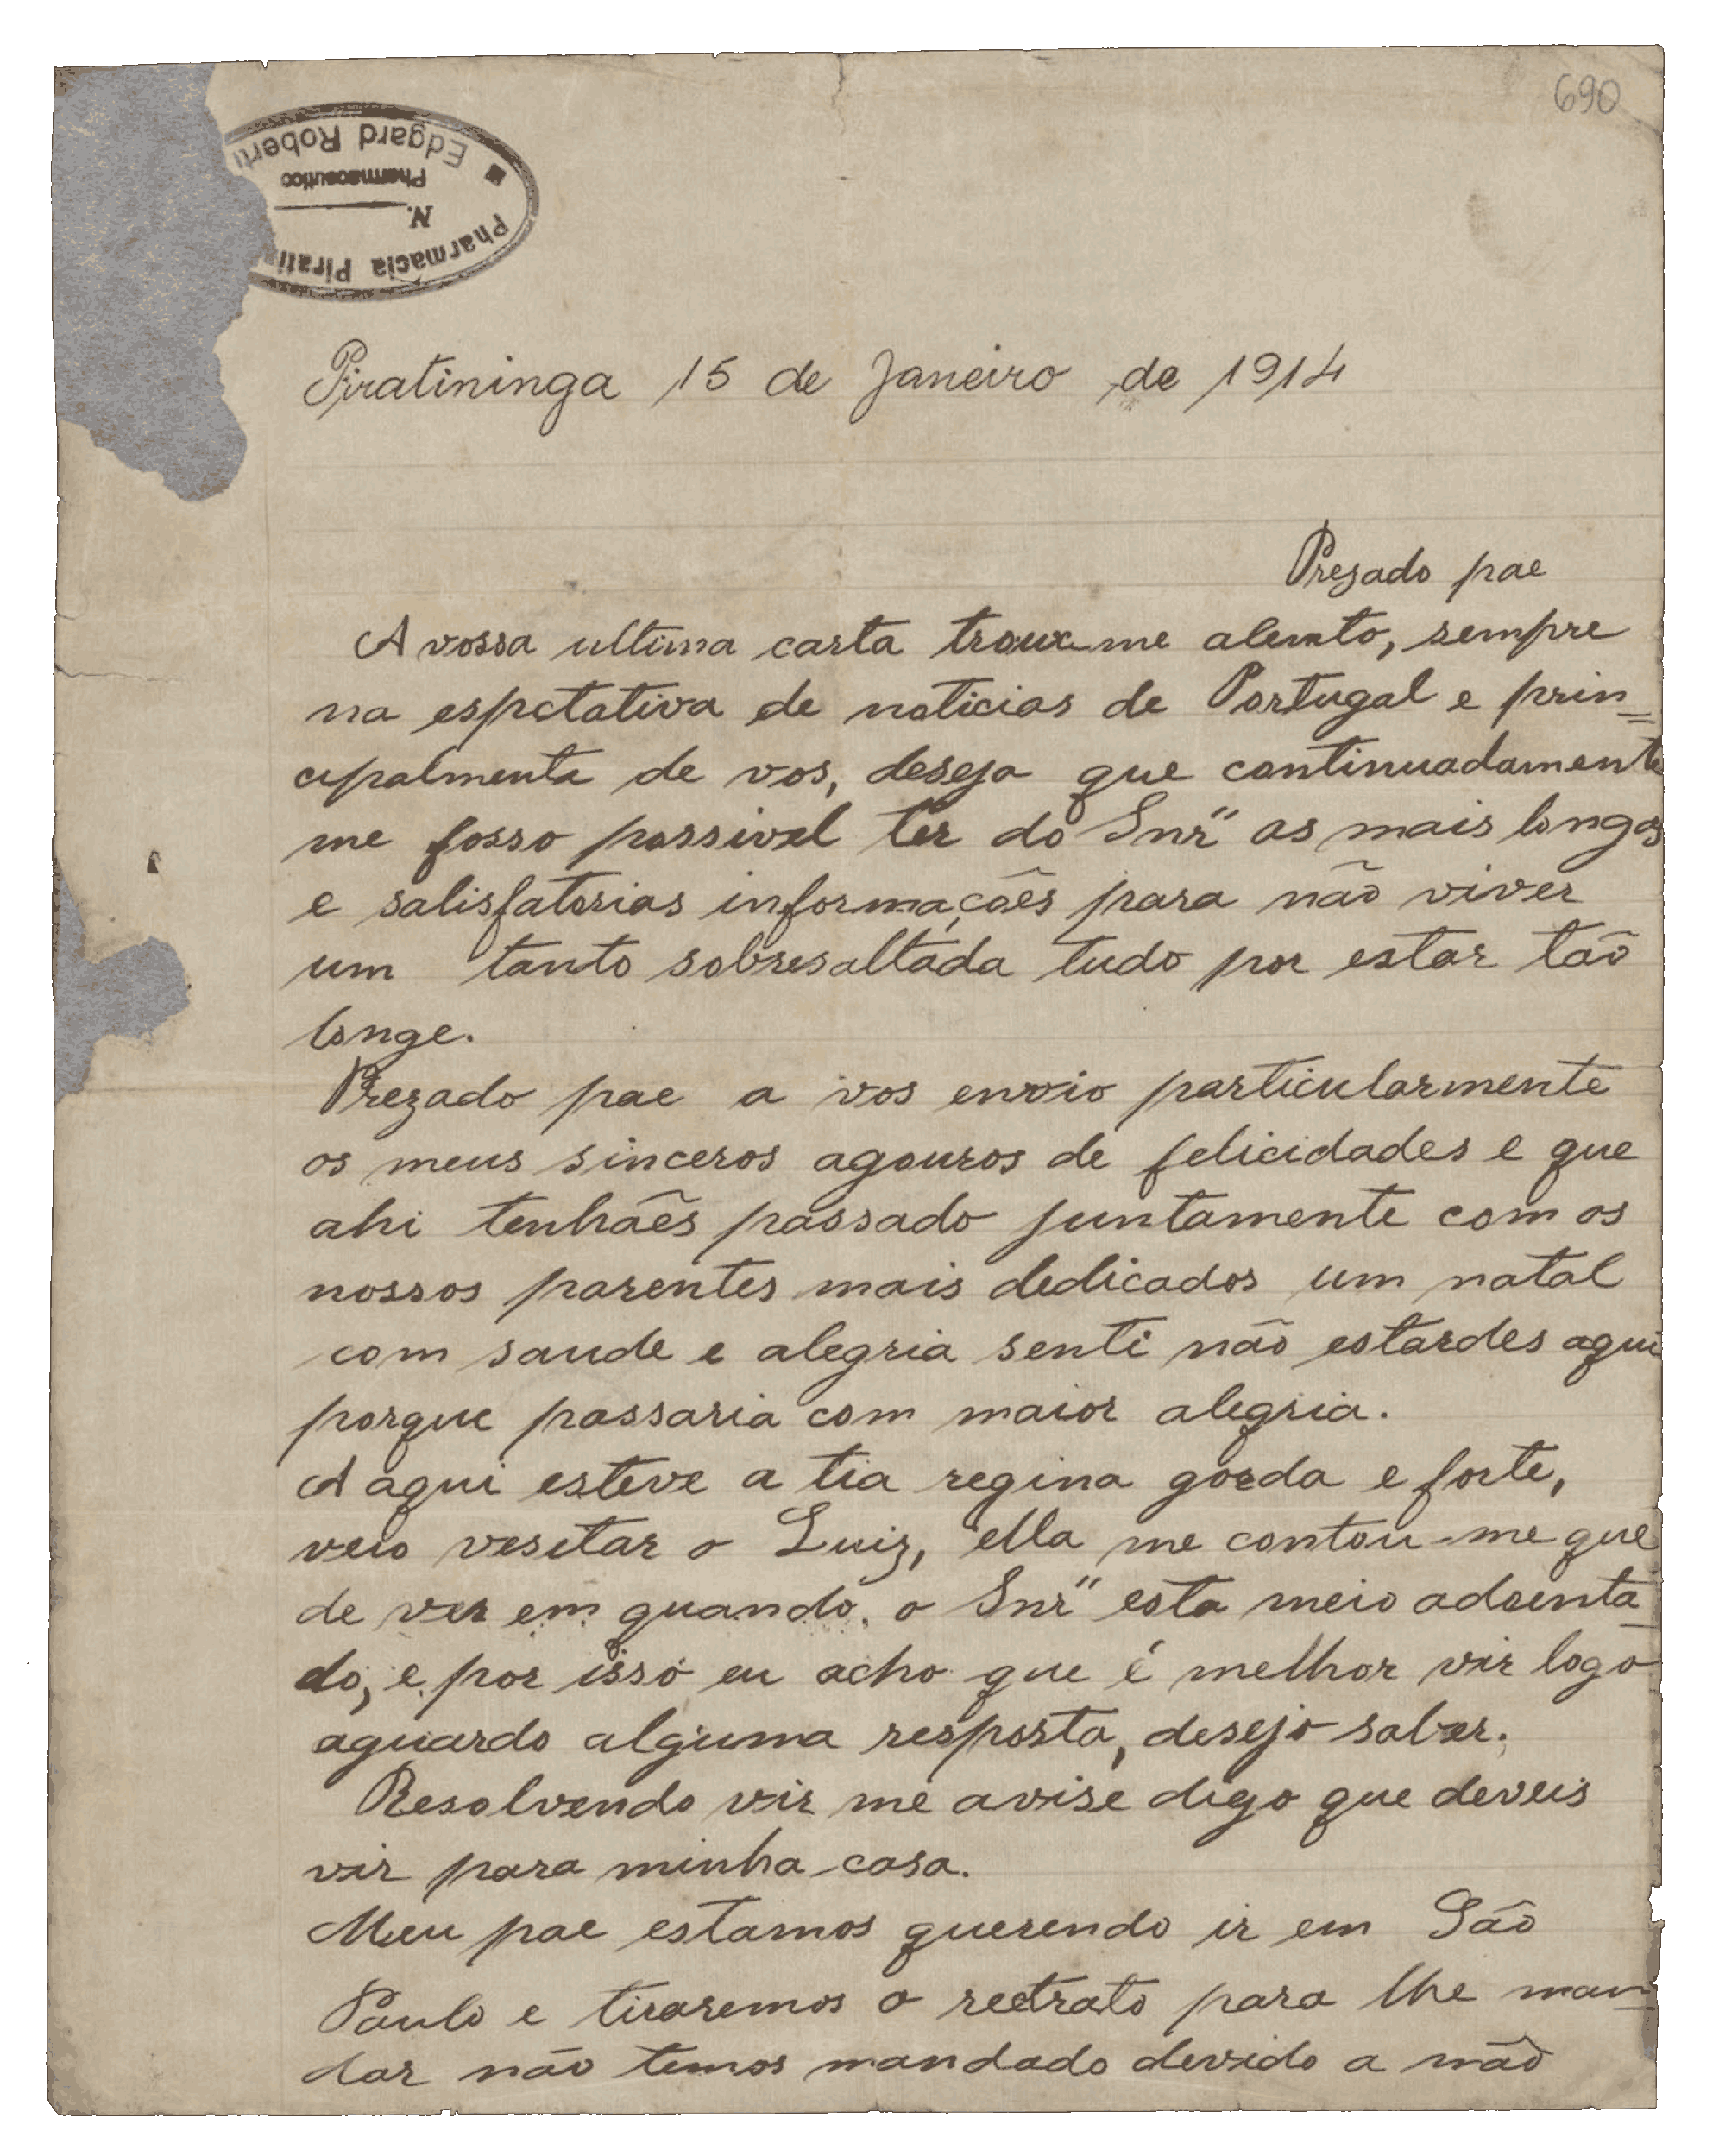 690
Edgard Robert
Pharmaceutico
N.
Pharmacia Pirati
Piratininga 15 de Janeiro de 1914
Prezado pae
A vossa ultima carta troux-me alento, sempre
na espctativa de noticias de Portugal e prin=
cipalmente de vos, desejo que continuadamente
me fosso possivel ter do Snr" as mais longas
e salisfatorias informações para não viver
um tanto sobresaltada tudo por estar tão
longe.
Prezado pae a vos envio particularmente
os meus sinceros agouros de felicidades e que
ahi tenhães passado juntamente com os
nossos parentes mais dedicados um natal
com saude e alegria senti não estardes aqui
porque passaria com maior alegria.
A aqui esteve a tia regina gorda e forte,
veio vesitar o Luiz, ella me contou-me que
de vez em quando, o Snr" esta meio adoenta
do, e por isso eu acho que é melhor vir logo
aguardo alguma resposta, desejo saber.
Resolvendo vir me avise digo que deveis
vir para minha casa.
Meu pae estamos querendo ir em São
Paulo e tiraremos o rectrato para lhe man=
dar não temos mandado devido a não